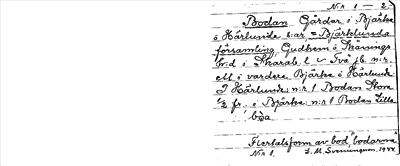 N:r 1 — 2.
Bodan Gårdar i Bjärke
o Hårlunda s:ar = Bjärklunda
församling, Gudhem o Skånings
h:d i Skarab. l. Två jb. n:r.
ett i vardera Bjärke o Hårlunda
I Hårlunda n:r 1 Bodan Stom
½ fr. i Bjärke n:r 1 Bodan Lilla
Flertalsform av bod "bodarna"
N:r 1. S. M. 1944